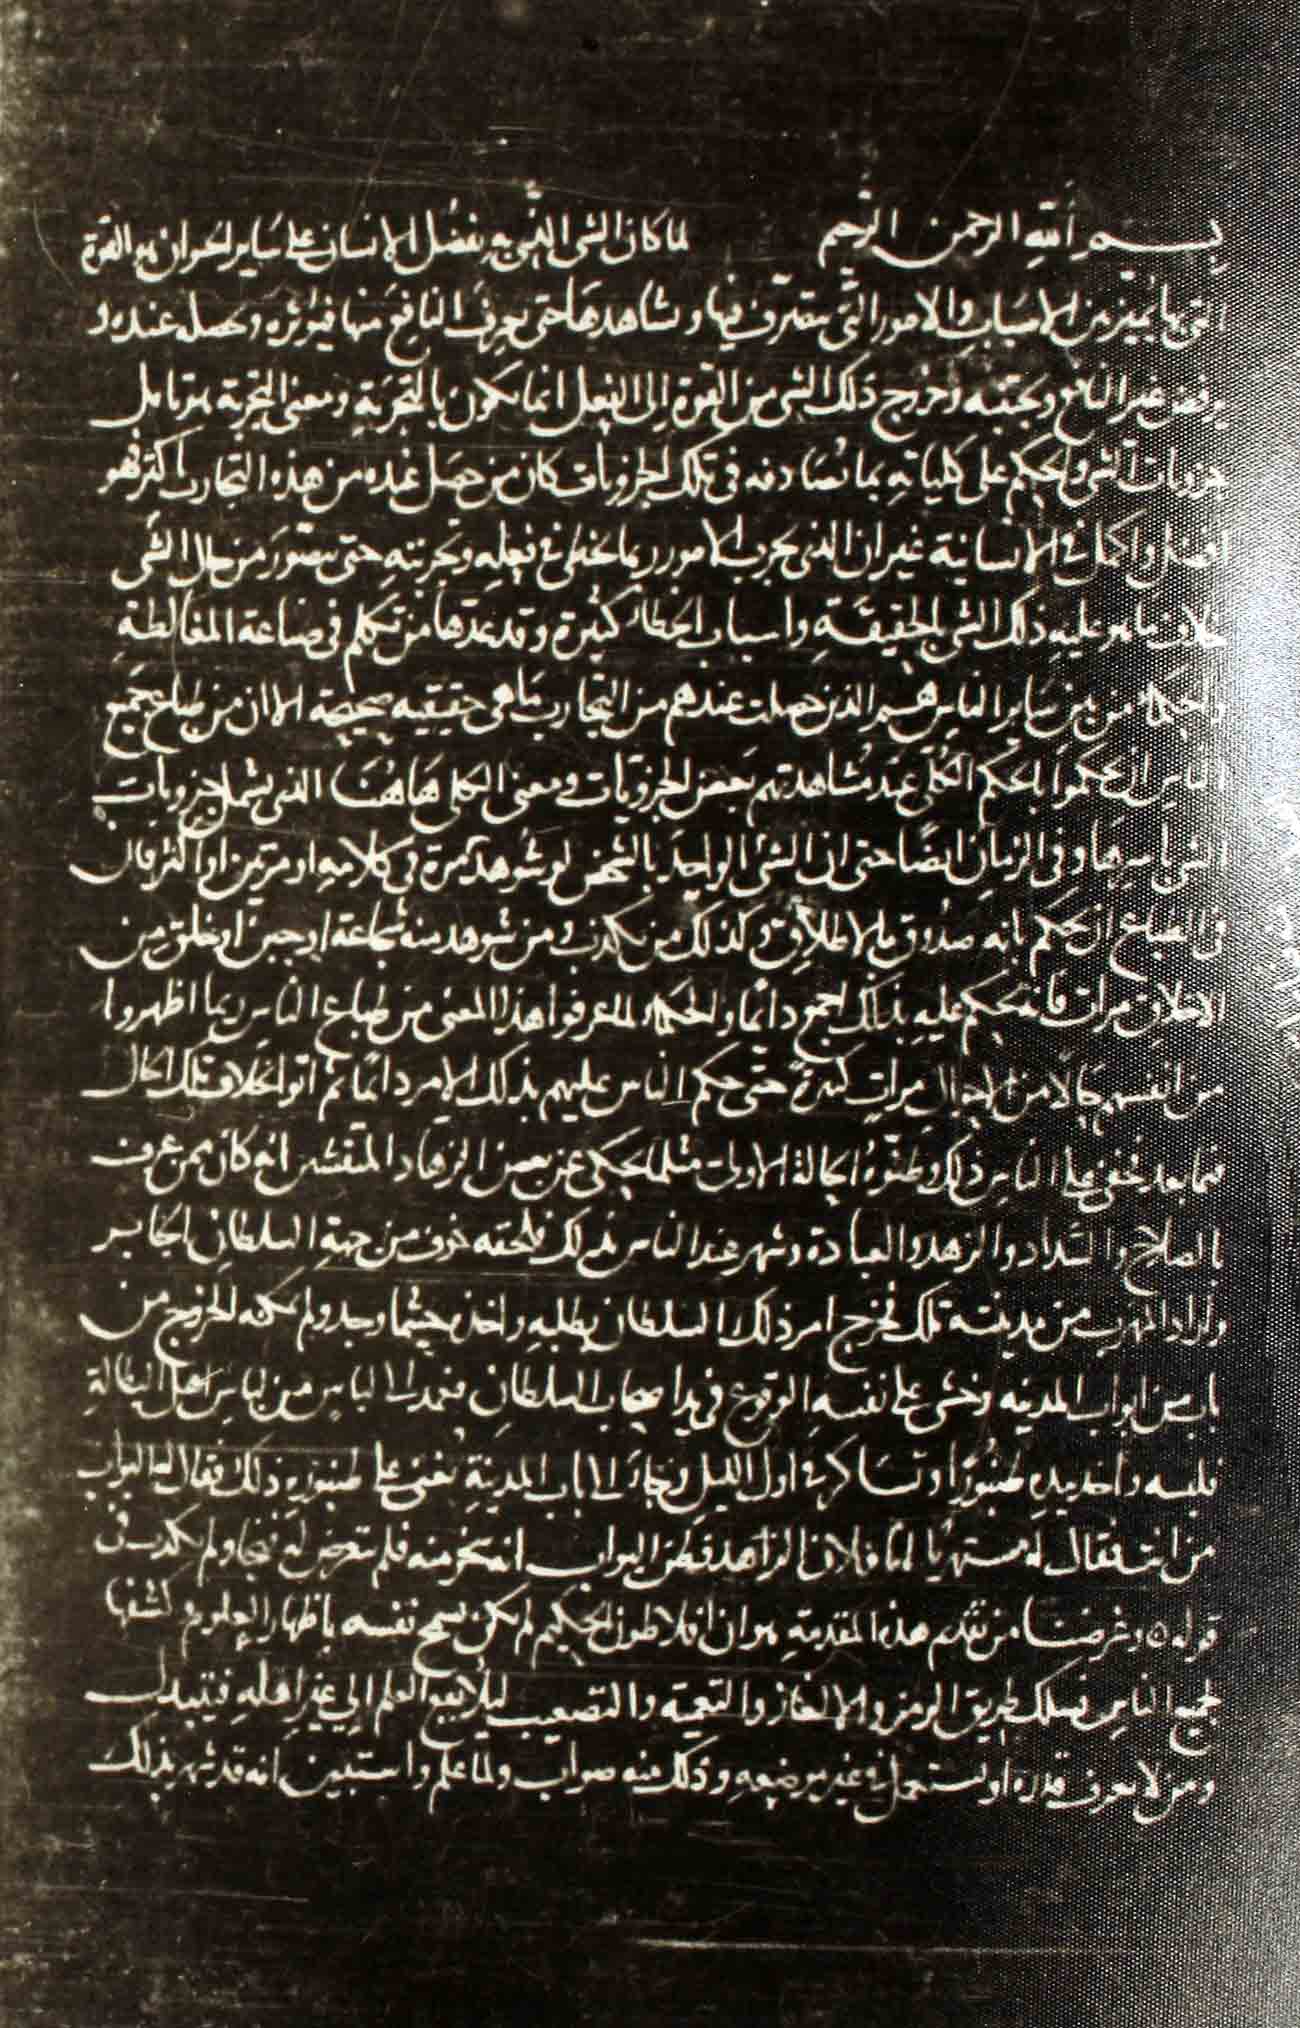 بسم الله الرحمن الرحيم لما كان الشى الذى به يفضل الانسان على ساير الحيوان هو القوة
التى بها يميز بين الاسباب والامور التى يتصرف فيها ويشاهدها حتى يعرف النافع منها فيوثره ويحصله عنده و
يرفض غير النافع ويجتنبه وخروج ذلك الشى من القوة الى الفعل انما يكون بالتجربة ومعنى التجربة هو تامل
جزويات الشى والحكم على كلياته بما نصادفه فى تلك الجزويات كان من حصل عنده من هذه التجارب اكثر فهو
افضل واكمل فى الانسانية غير ان الذى يجرب الامور ربما يخطى فى فعله وتجربته حتى يتصور من حال الشى
خلاف ما هو عليه ذلك الشى بالحقيقة واسباب الخطاء كثيرة وقد عدها من تكلم فى صناعة المغالطة
والحكماء من بين ساير الناس هم الذين حصلت عندهم من التجارب ما هى حقيقيه صحيحة الا ان من طباع جميع
الناس ان يحكموا بالحكم الكلى عند مشاهدتهم بعض الجزويات ومعنى الكلى هاهنا الذى يشمل جزويات
الشى باسرها وفى الزمان ايضا حتى ان الشى الواحد بالشخص لو شوهد مرة فى كلامه او مرتين او اكثر فان
فى الطباع ان يحكم بانه صدوق على الاطلاق وكذلك من يكذب ومن شوهد منه شجاعة او جبن او خلق من
الاخلاق مرات فانه يحكم عليه بذلك اجمع دائما والحكماء لما عرفوا هذا المعنى من طباع الناس ربما اظهروا
من انفسهم حالا من الاحوال مرات كثيرة حتى حكم الناس عليهم بذلك الامر دائما ثم اتوا بخلاف تلك الحال
فيما بعد فخفى على الناس ذلك وظنوه الحالة الاولى مثلما يحكى عن بعض الزهاد المتقشفين انه كان ممن عرف
بالصلاح والسداد والزهد والعبادة وشهر عند الناس بذلك فلحقه خوف من جهة السلطان الجابر
واراد الهرب من مدينته تلك فخرج امر ذلك السلطان بطلبه واخذه حيثما وجد ولم يمكنه الخروج من
باب من ابواب المدينه وخشى على نفسه الوقوع فى يد اصحاب السلطان فعمد الى لباس من لباس اهل البطالة
فلبسه واخذ بيده طنبورا وتساكر فى اول الليل وجاء الى باب المدينة يغنى على طنبوره ذلك فقال له البواب
من انت فقال له مستهزيا انا فلان الزاهد فظن البواب انه يسخر منه فلم يتعرض له فنجا ولم يكذب فى
قوله ٥ وغرضنا من تقديم هذه المقدمة هو ان افلاطون الحكيم لم يكن يسمح نفسه باظهار العلوم وكشفها
لجميع الناس فسلك طريق الرمز والالغاز والتعمية والتصعيب ليلا يقع العلم الى غير اهله فيتبدل
ومن لا يعرف قدره او يستعمل فى غير موضعه وذلك منه صواب ولما علم واستبين انه قد شهر بذلك